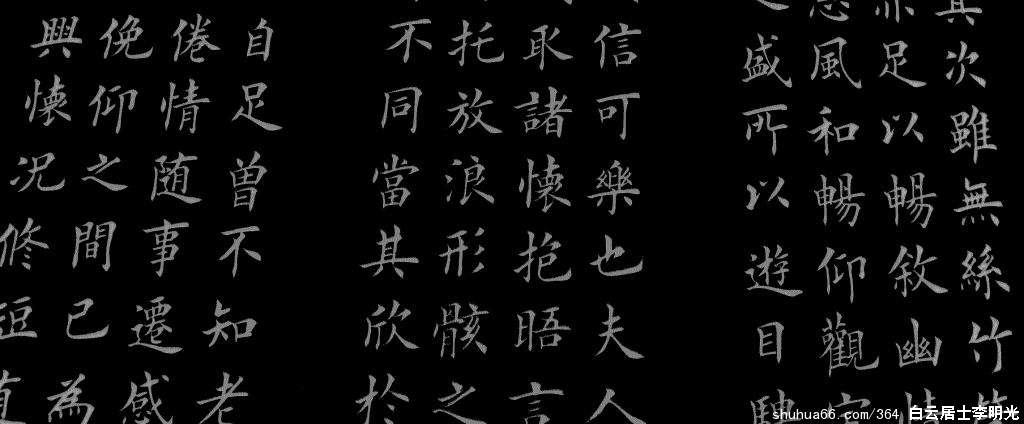 其次雖無絲竹
亦足以暢敘幽情
風和暢仰觀宇
之盛所以遊目騁
信可樂也夫人
取諸懷抱晤言
托放浪形骸之
不同當其欣於
自足曾不知老
倦情随事遷感
俛仰之間已為
興懷况修短随
shuhua66.com/364 白云居士李明光